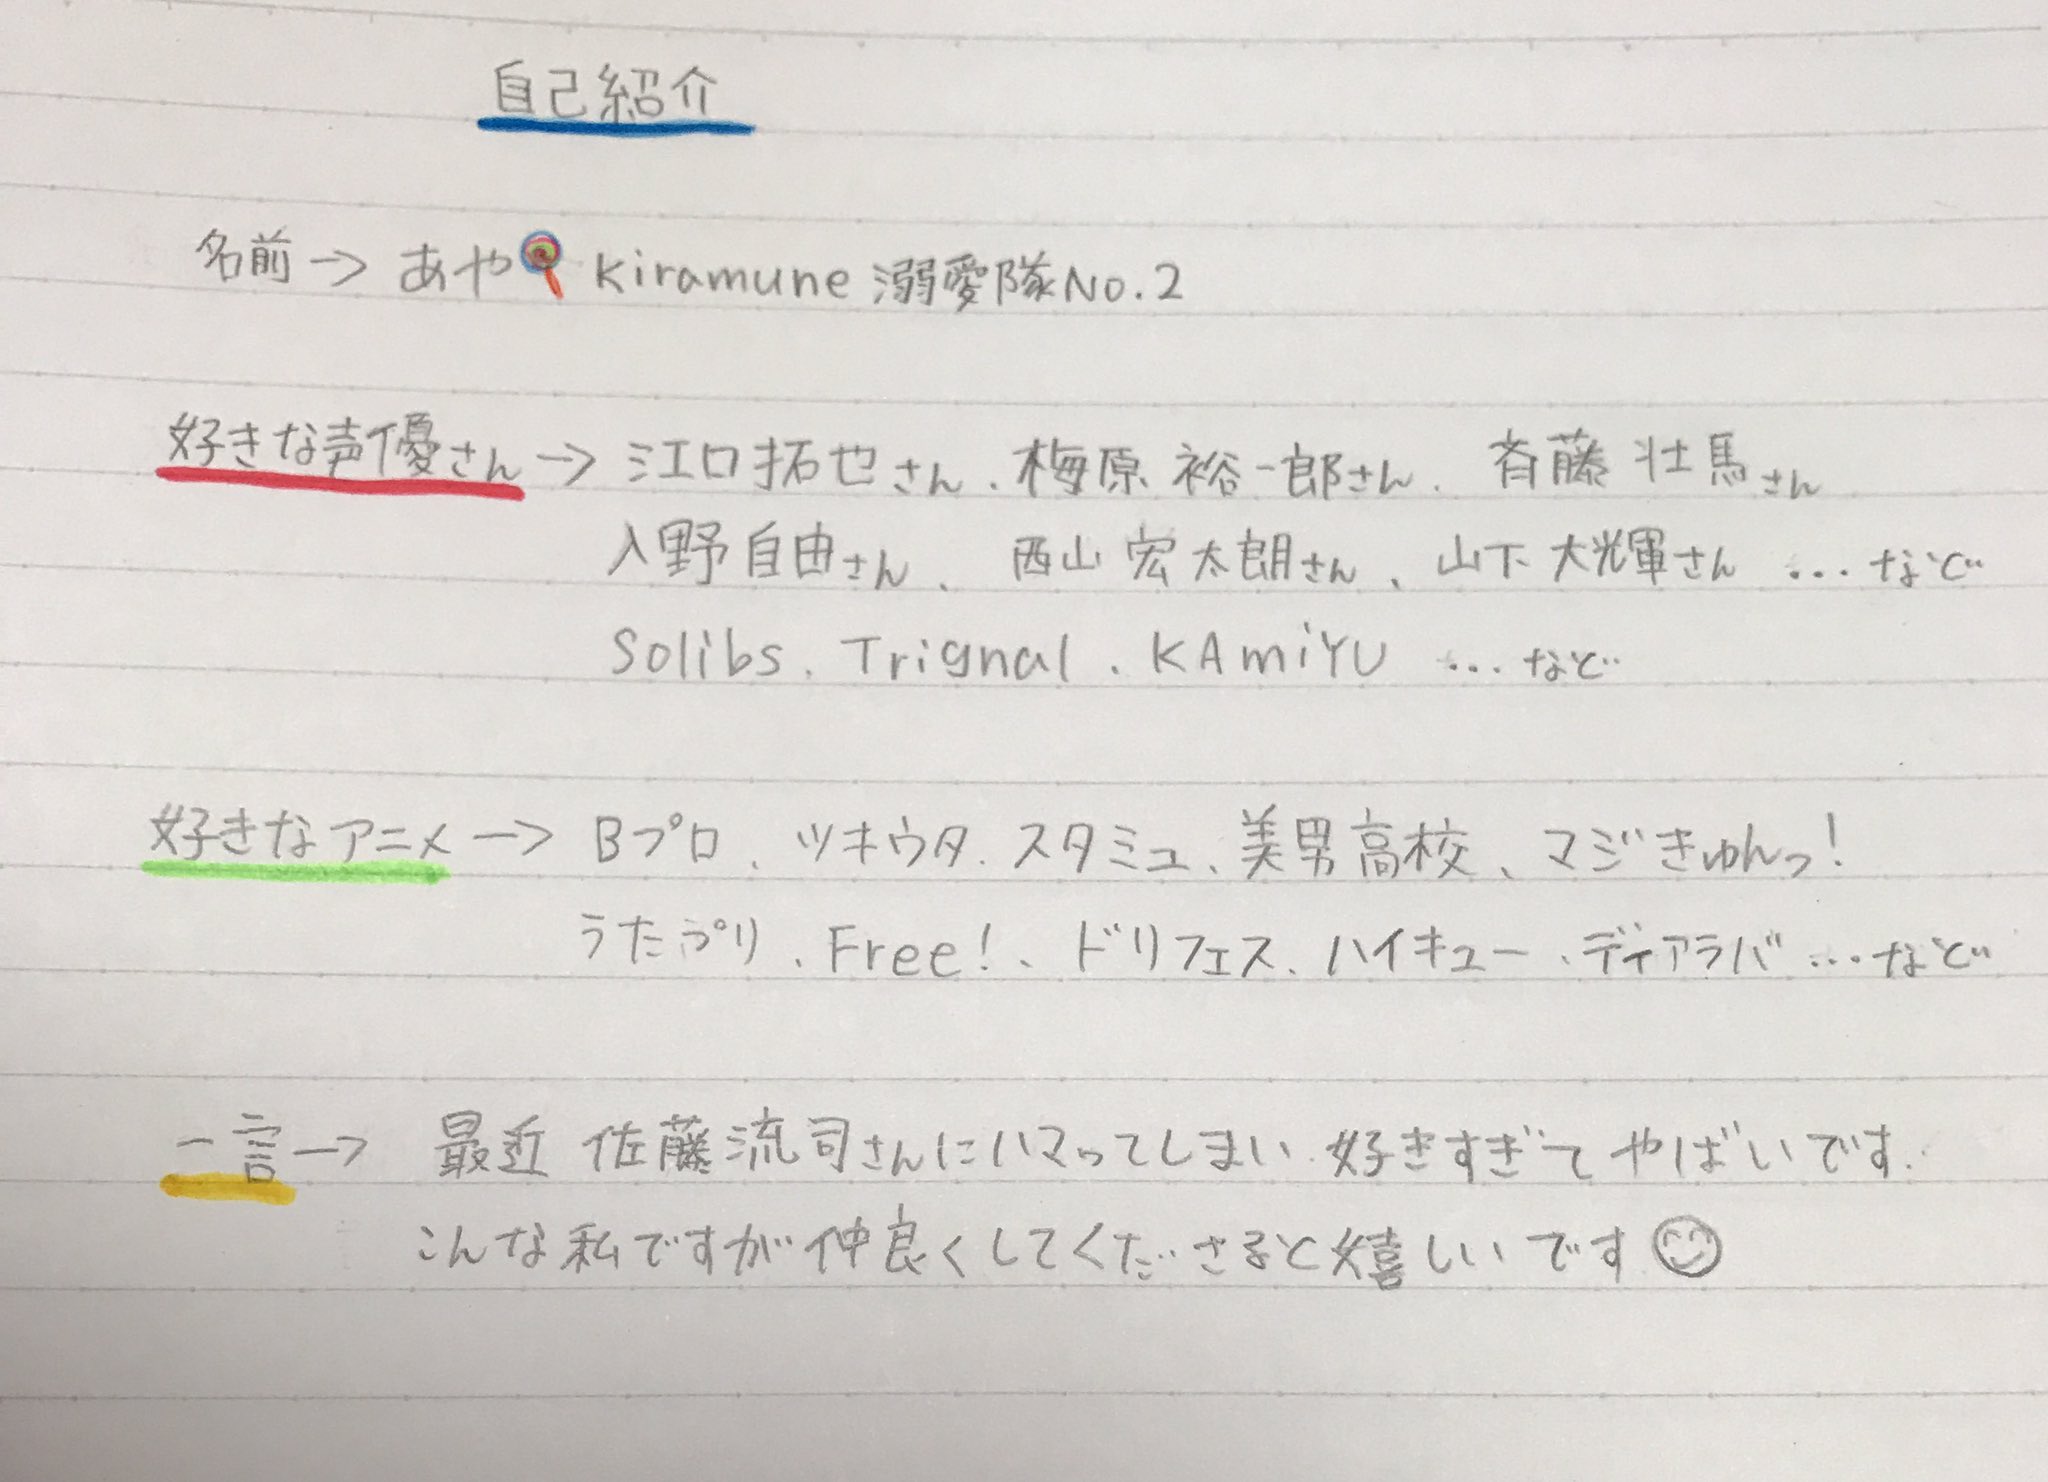 自己紹介
名前→あや🍭kiramune溺愛隊No.2
好きな声優さん→江口拓也さん、梅原裕一郎さん、斉藤壮馬さん
入野自由さん、西山宏太朗さん、山下大輝さん...など
Solibs、Trignal、KAmiYU...など
好きなアニメ→Bプロ、ツキウタ、スタミュ、美男高校、マジきゅんっ!
うたぷり、Free!、ドリフェス、ハイキュー、ディアラバ...など
一言→最近佐藤流司さんにハマってしまい、好きすぎてやばいです。
こんな私ですが仲良くしてくださると嬉しいです☺